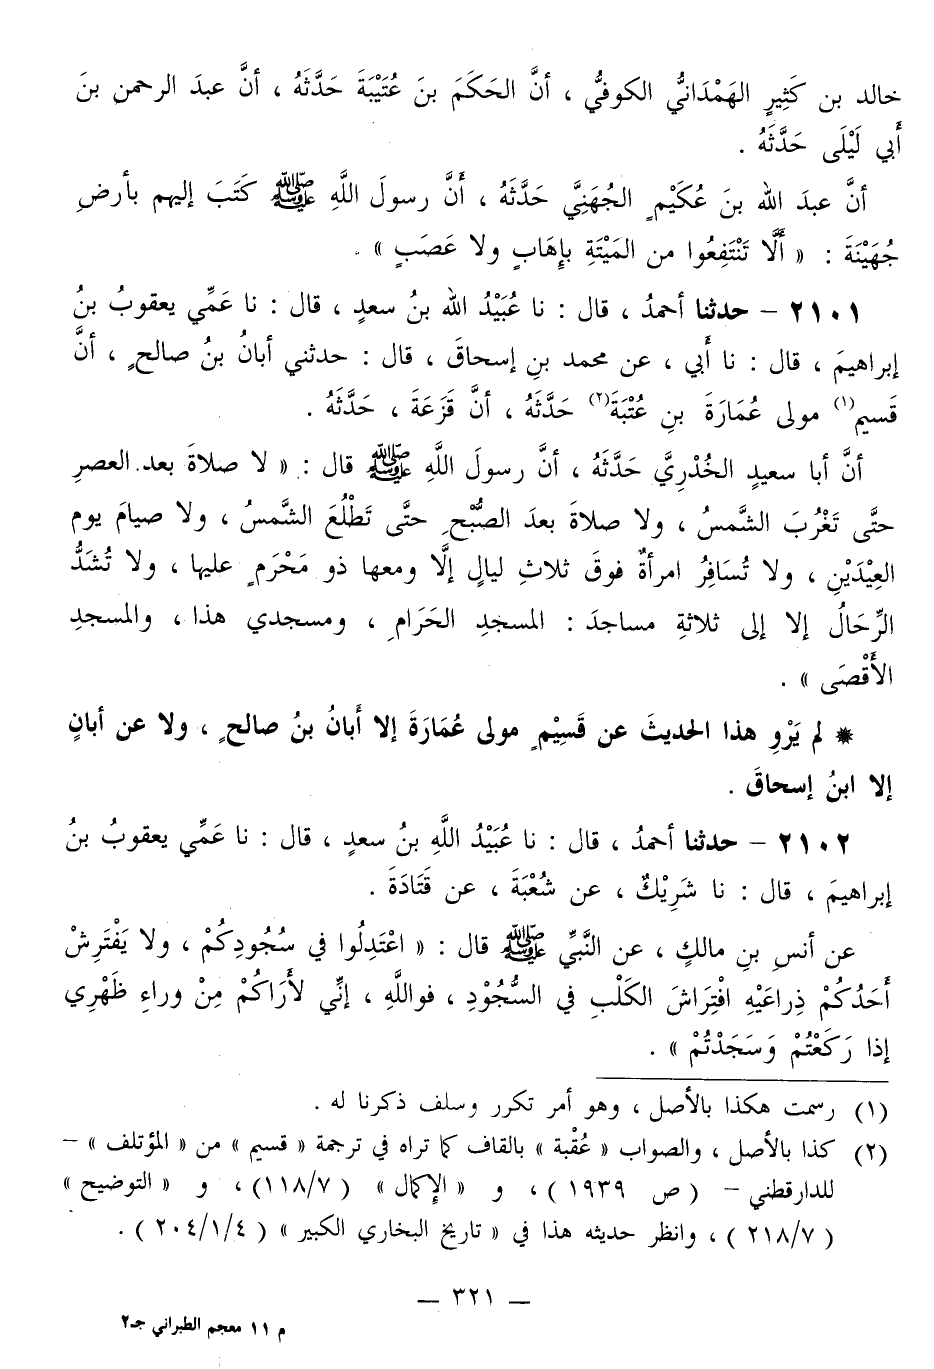 خالد بن كَثِيرٍ الهَمْدَانيُّ الكوفيُّ ، أنَّ الحَكَمَ بنَ عُتَيْبَةَ حَدَّثَهُ ، أنَّ عبدَ الرحمن بنَ
أَبي لَيْلَى حَدَّثَهُ .
أنَّ عبدَ الله بنَ عُكَيْمٍ الجُهَنِيَّ حَدَّثَهُ ، أَنَّ رسولَ اللَّهِ ﷺ كَتَبَ إليهم بأرضِ
جُهَيْنَةَ : « أَلَّا تَنْتَفِعُوا من المَيْتَةِ بإِهَابٍ ولا عَصَبٍ » .
٢١٠١ – حدثنا أحمدُ ، قال : نا عُبَيْدُ الله بنُ سعدٍ ، قال : نا عَمِّي يعقوبُ بنُ
إبراهيمَ ، قال : نا أَبي ، عن محمد بنِ إسحاقَ ، قال : حدثني أبانُ بنُ صالحٍ ، أنَّ
قَسيم(١) مولى عُمَارَةَ بنِ عُتْبَةَ(٢) حَدَّثَهُ ، أنَّ قَزَعَةَ ، حَدَّثَهُ .
أنَّ أبا سعيدٍ الخُدْرِيَّ حَدَّثَهُ ، أنَّ رسولَ اللَّهِ ﷺ قال : « لا صلاةَ بعد العصرِ
حتَّى تَغْرُبَ الشَّمسُ ، ولا صلاةَ بعدَ الصُّبْحِ حتَّى تَطْلُعَ الشَّمسُ ، ولا صيامَ يوم
العِيْدَيْنِ ، ولا تُسَافِرُ امرأةٌ فوقَ ثلاثِ ليالٍ إلَّا ومعها ذو مَحْرَمٍ عليها ، ولا تُشَدُّ
الرِّحَالُ إلا إلى ثلاثةِ مساجدَ : المسجدِ الحَرَامِ ، ومسجدي هذا ، والمسجدِ
الأَقْصَى » .
* لم يَرْوِ هذا الحديثَ عن قَسِيْمٍ مولى عُمَارَةَ إلا أَبَانُ بنُ صالحٍ ، ولا عن أبانٍ
إلا ابنُ إسحاقَ .
٢١٠٢ – حدثنا أحمدُ ، قال : نا عُبَيْدُ اللَّهِ بنُ سعدٍ ، قال : نا عَمِّي يعقوبُ بنُ
إبراهيمَ ، قال : نا شَرِيْكٌ ، عن شُعْبَةَ ، عن قَتَادَةَ .
عن أنسِ بنِ مالكٍ ، عن النَّبيِّ ﷺ قال : « اعْتَدِلُوا في سُجُودِكُمْ ، ولا يَفْتَرِشْ
أَحَدُكُمْ ذِرَاعَيْهِ افْتِرَاشَ الكَلْبِ في السُّجُوْدِ ، فواللَّهِ ، إنِّي لأَرَاكُمْ مِنْ وراءِ ظَهْرِي
إذا رَكَعْتُمْ وَسَجَدْتُمْ » .
(١) رسمت هكذا بالأصل ، وهو أمر تكرر وسلف ذكرنا له .
(٢) كذا بالأصل ، والصواب « عُقْبة » بالقاف كما تراه في ترجمة « قسيم » من « المؤتلف » –
للدارقطني – ( ص ١٩٣٩ ) ، و « الإِكمال » ( ١١٨/٧ ) ، و « التوضيح »
( ٢١٨/٧ ) ، وانظر حديثه هذا في « تاريخ البخاري الكبير » ( ٢٠٤/١/٤ ) .
– ٣٢١ –
م ١١ معجم الطبراني جـ٢